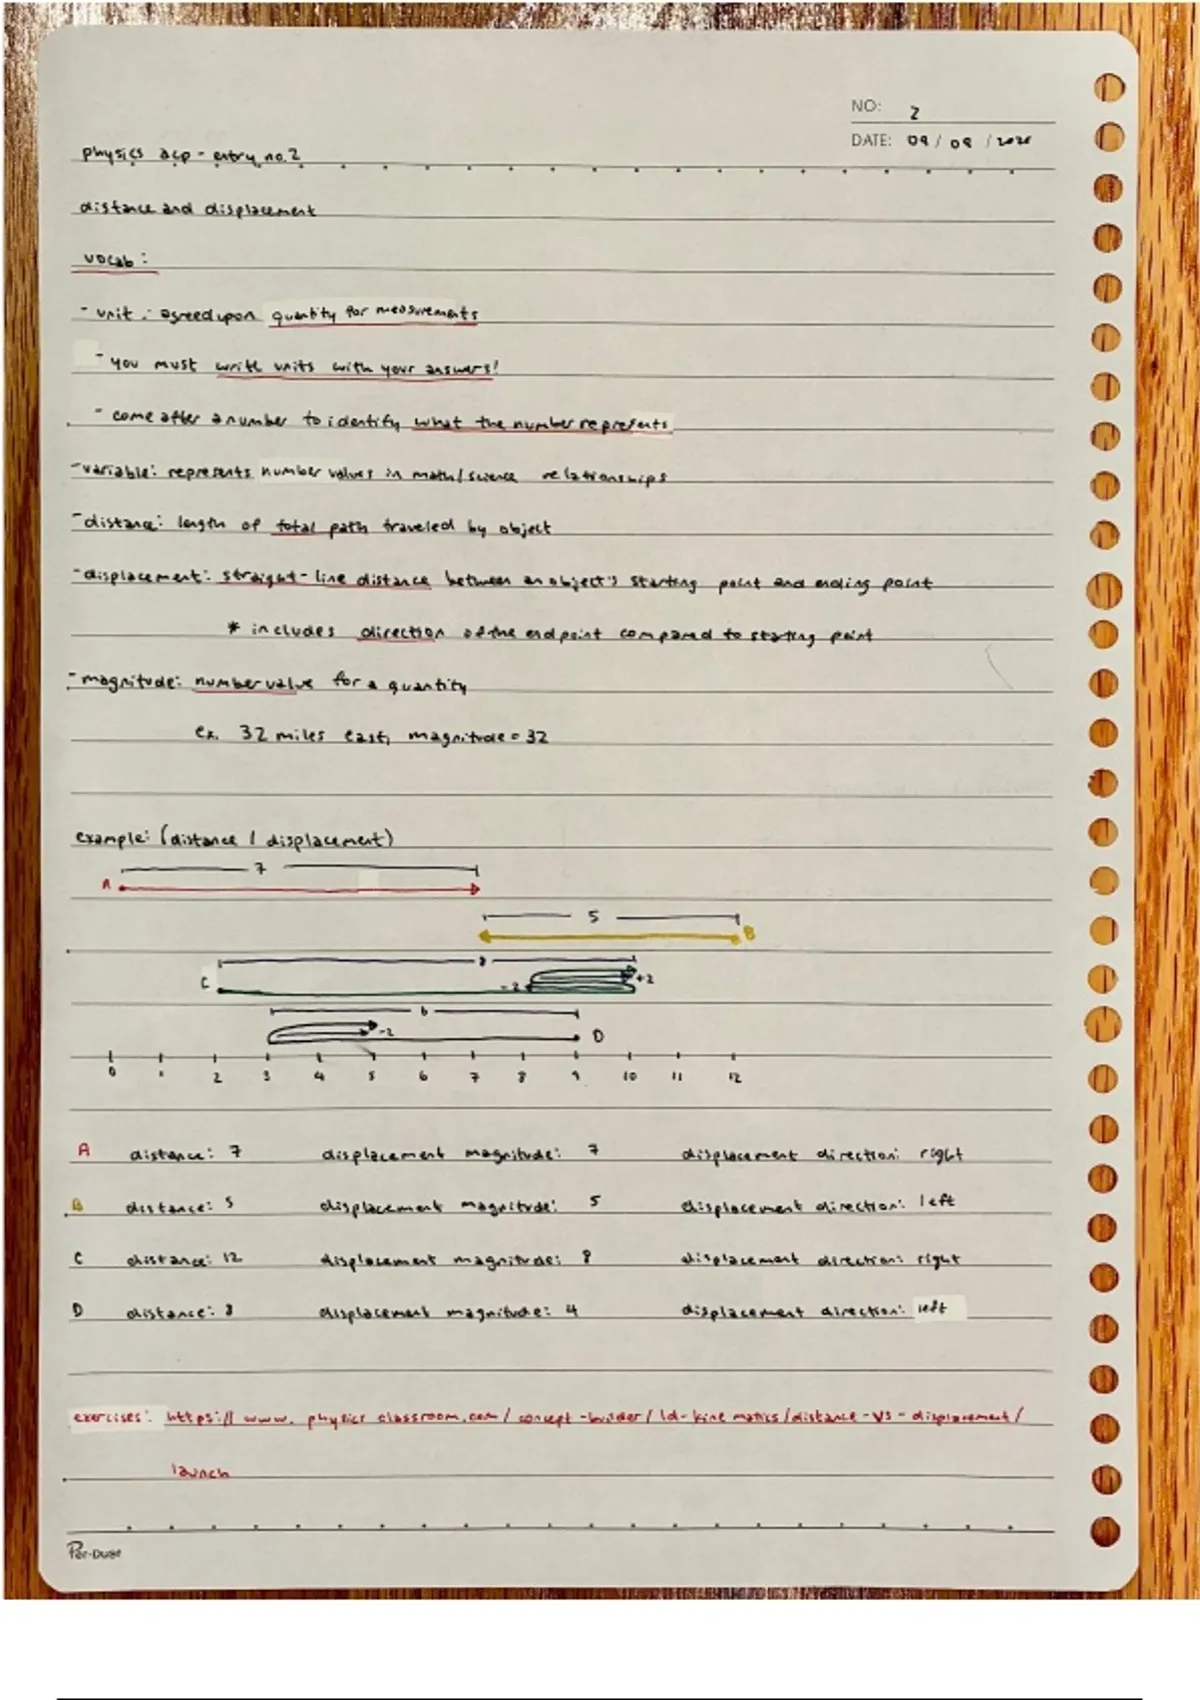 NO: 2
DATE: 09 / 09 / 2020
physics acp - entry no. 2
distance and displacement
vocab:
- unit: agreed upon quantity for measurements
- you must write units with your answers!
- come after a number to identify what the number represents
- variable: represents number values in math/science relationships
- distance: length of total path traveled by object
- displacement: straight-line distance between an object's starting point and ending point
* includes direction of the endpoint compared to starting point
- magnitude: number value for a quantity
ex. 32 miles east, magnitude = 32
example: (distance / displacement)
7
A
5
B
8
C -2 +2
6
-2 D
0 1 2 3 4 5 6 7 8 9 10 11 12
A distance: 7 displacement magnitude: 7 displacement direction: right
B distance: 5 displacement magnitude: 5 displacement direction: left
C distance: 12 displacement magnitude: 8 displacement direction: right
D distance: 8 displacement magnitude: 4 displacement direction: left
exercises: https://www.physicsclassroom.com/concept-builder/1d-kinematics/distance-vs-displacement/
launch